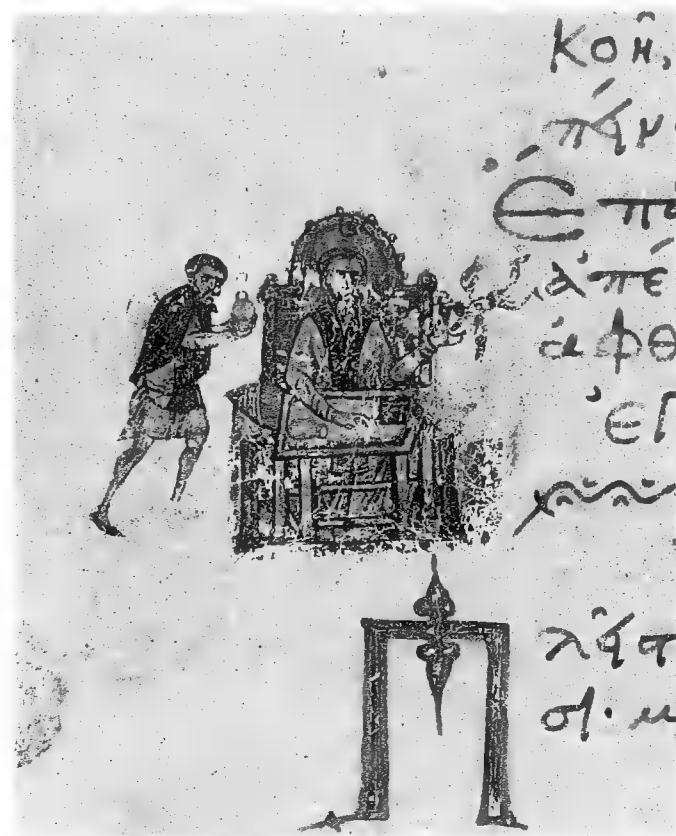 κοῆ,
πάν
Ἐπ
ἀπέ
ἀφθ
ἐΓ
Π
λάσ
σι· μ